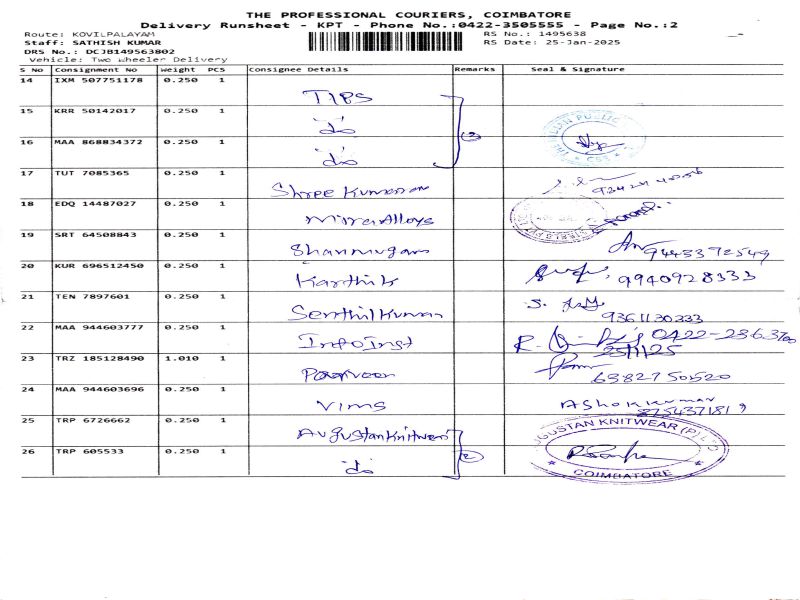 THE PROFESSIONAL COURIERS, COIMBATORE
Delivery Runsheet - KPT - Phone No.:0422-3505555 - Page No.:2
Route: KOVILPALAYAM RS No.: 1495638
Staff: SATHISH KUMAR RS Date: 25-Jan-2025
DRS No.: DCJB149563802
Vehicle: Two Wheeler Delivery
S No Consignment No Weight PCS Consignee Details Remarks Seal & Signature
14 IXM 507751178 0.250 1 TIPS
15 KRR 50142017 0.250 1 do
16 MAA 868834372 0.250 1 do
17 TUT 7085365 0.250 1 Shree Kumaran
18 EDQ 14487027 0.250 1 Mira Alloys
19 SRT 64508843 0.250 1 Shanmugam 9443372549
20 KUR 696512450 0.250 1 Karthik 9940928333
21 TEN 7897601 0.250 1 Senthil Kumar 9361130233
22 MAA 944603777 0.250 1 Info Inst 0422-2363700
25/1/25
23 TRZ 185128490 1.010 1 6382750520
24 MAA 944603696 0.250 1 VIMS ASHOKKUMAR
8754371819
25 TRP 6726662 0.250 1 Augustan Knitwear
26 TRP 605533 0.250 1 do 2
AUGUSTAN KNITWEAR (P) LTD
COIMBATORE